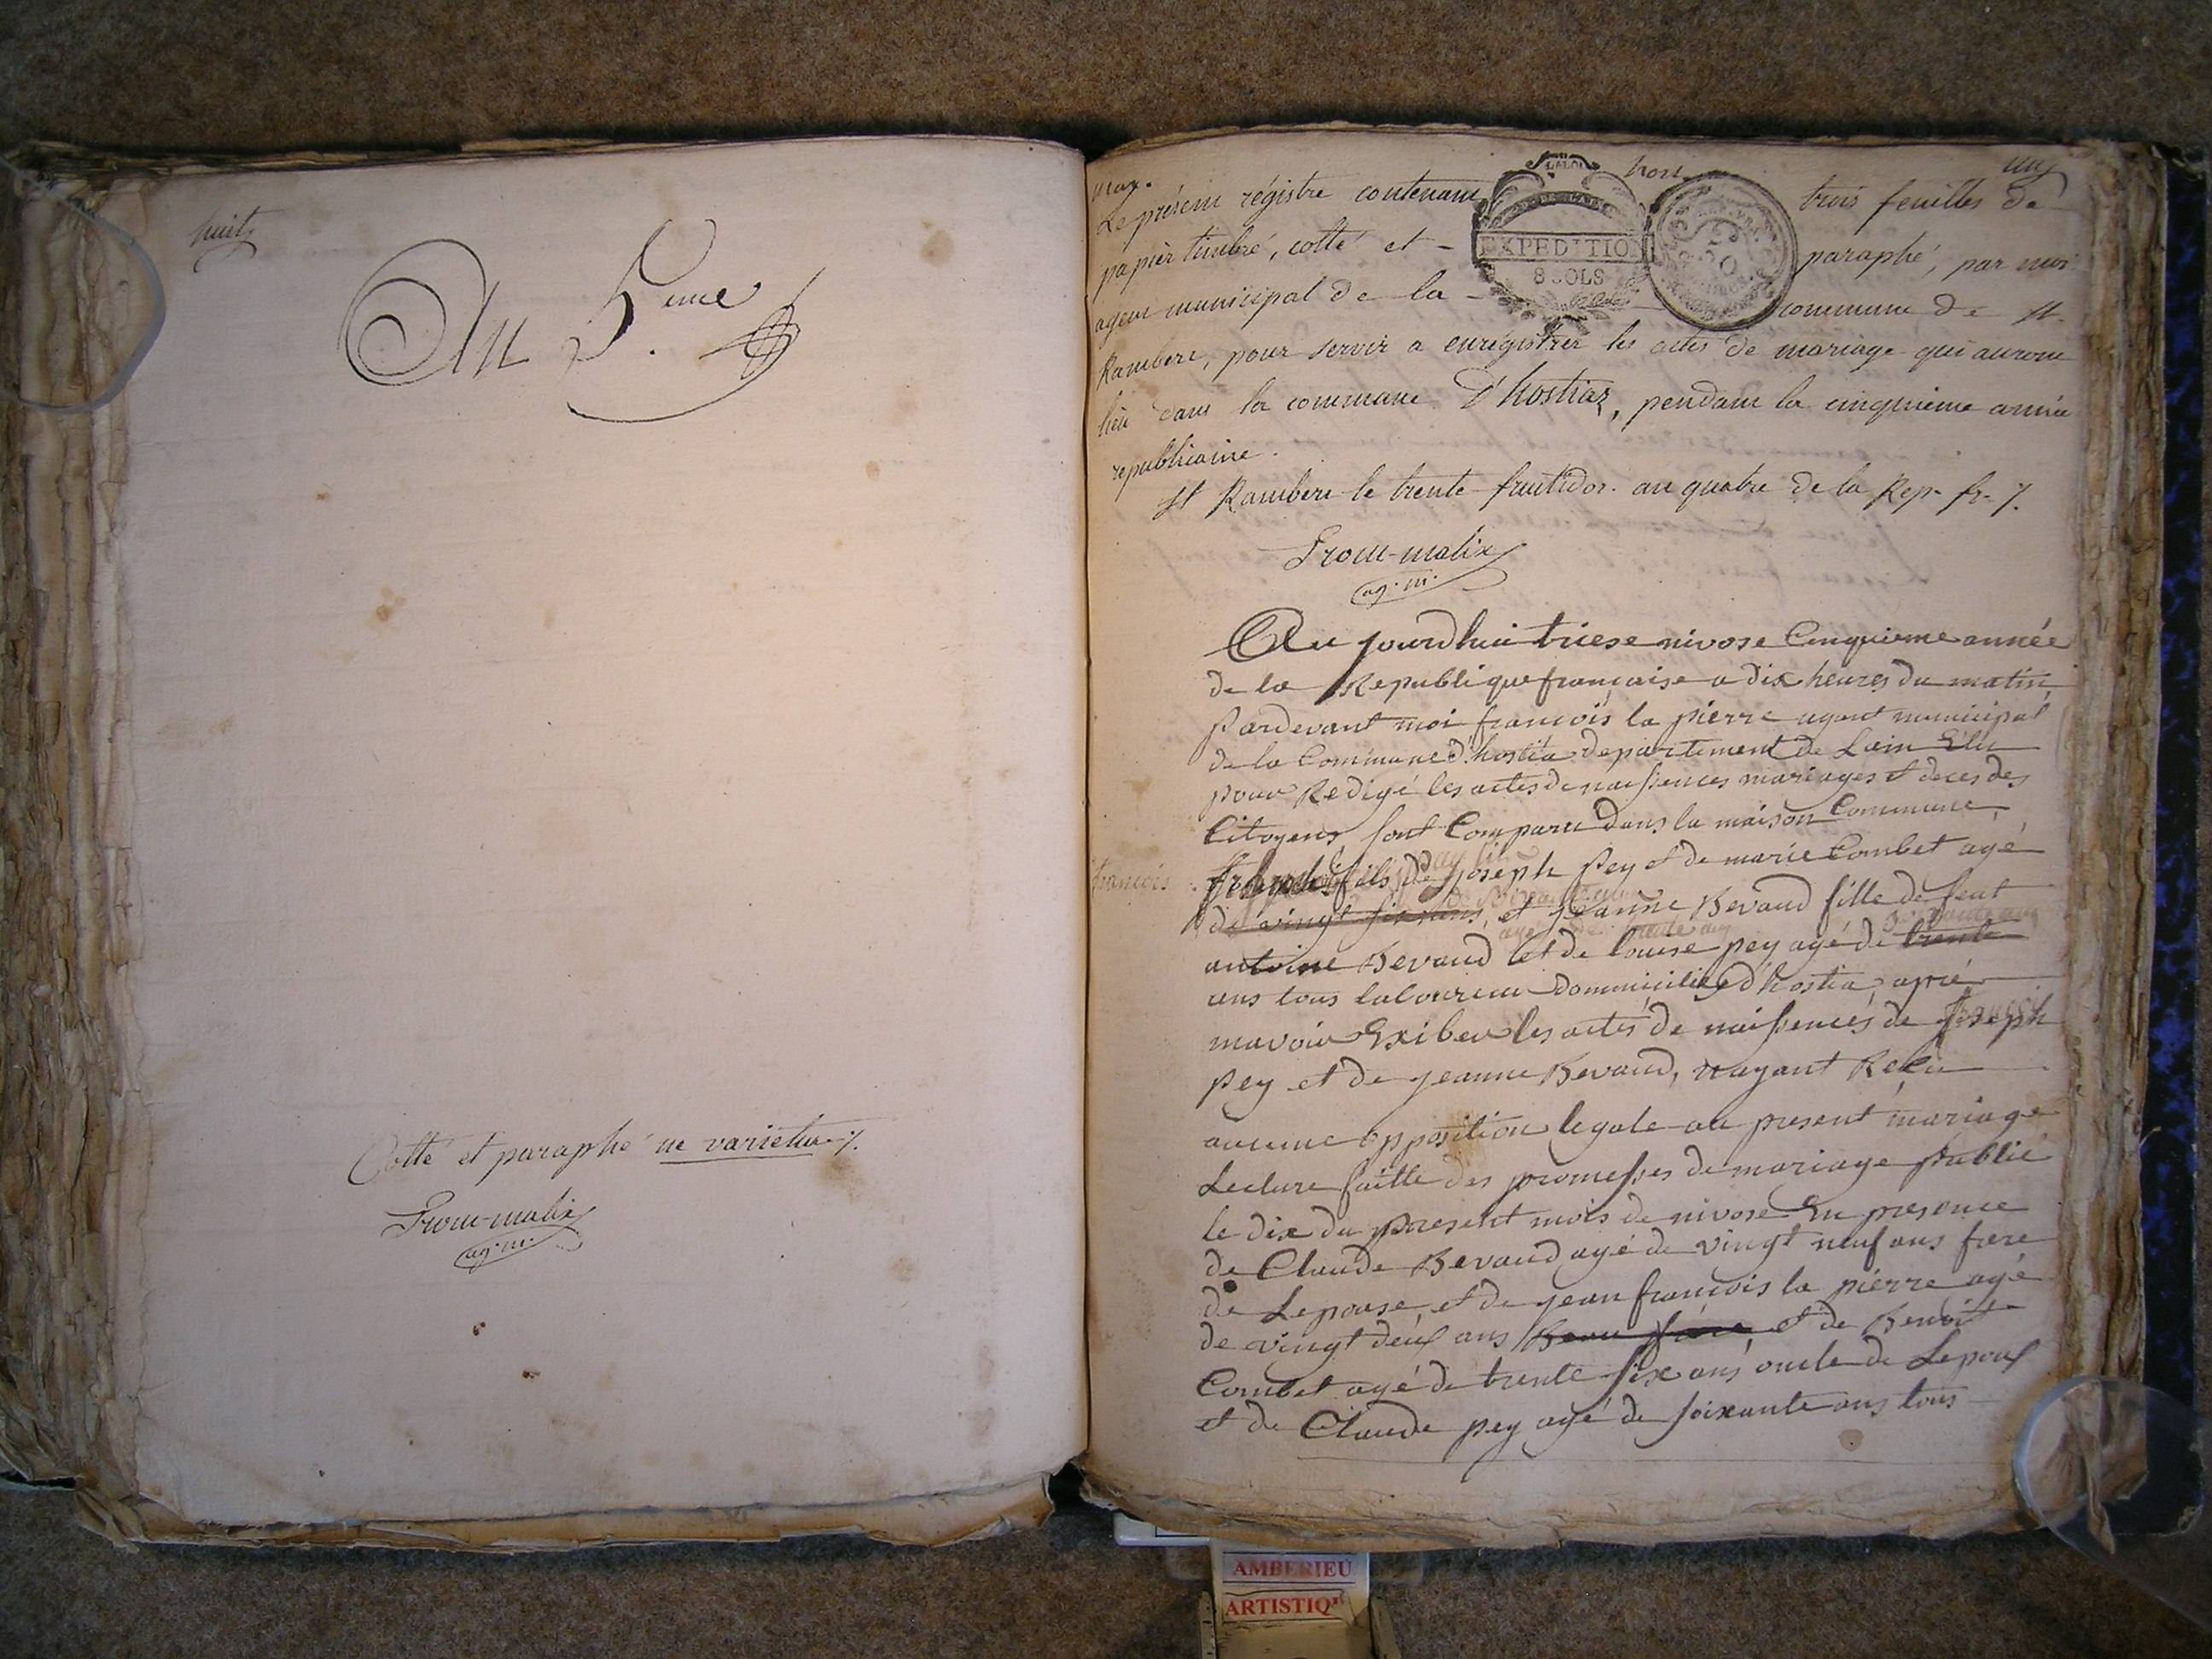 huit
An 5.eme
Cotté et paraphé ne varietur ./.
ag. m.
Mar.
host.
Le présent régistre contenant trois feuilles de
papier timbré, cotté et - paraphé, par moi
agent municipal de la - commune de St.
Rambert, pour servir a enrégistrer les actes de mariage qui auront
lieu dans la commune D'hostiaz, pendant la cinquième année
republicaine.
EXPEDITION
8 SOLS
St Rambert le trente fructidor an quatre de la Rep. fr. ./.
ag. m.
Au jourdhui triese nivose Cinquieme année
de la Republique françaises a dix heures du matin
Pardevant moi françois la pierre agent municipal
de la Commune d'hostia departement de Lain Elu
pour Redigé les actes de naissences mariages et deces des
Citoyens, sont Comparu dans la maison Commune,
françois fils de Joseph Pey et de marie Combet agé
de vingt six ans, et jeanne Bevaud fille de feut
antoine Bevaud et de louise pey agé de trente
ans tous laboureur Dommicilié d'hostia, aprié
mavoir Exiber les actes de naissences de Joseph
pey et de jeanne Bevaud, nayant Reçu
aucune opposition legale au present mariage
Lecture faitte des promesses de mariage Publié
le dix du present mois de nivose En presence
de Claude Bevaud agé de vingt neuf ans frere
de Lepouse, et de jean françois la pierre agé
de vingt deux ans Beau frere et de Benoit
Combet agé de trente six ans oncle de Lepoux
et de Claude pey agé de soixante ans tous
AMBERIEU
ARTISTIQ